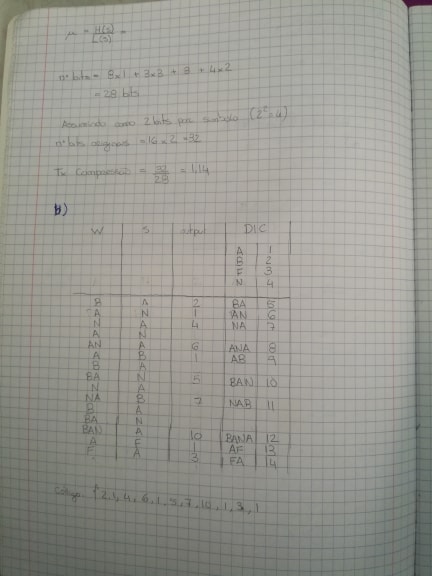 μ = H(S) / L(S) =
nº bits = 8x1 + 3x3 + 8 + 4x2
= 28 bits
Assumindo como 2 bits por símbolo (2² = 4)
nº bits originais = 16 x 2 = 32
Tx Compressão = 32/28 = 1,14
b)
W S output DIC
A 1
B 2
F 3
N 4
B A 2 BA 5
A N 1 AN 6
N A 4 NA 7
A N
AN A 6 ANA 8
A B 1 AB 9
B A
BA N 5 BAN 10
N A
NA B 7 NAB 11
B A
BA N
BAN A 10 BANA 12
A F 1 AF 13
F A 3 FA 14
Código {2,1,4,6,1,5,7,10,1,3,1